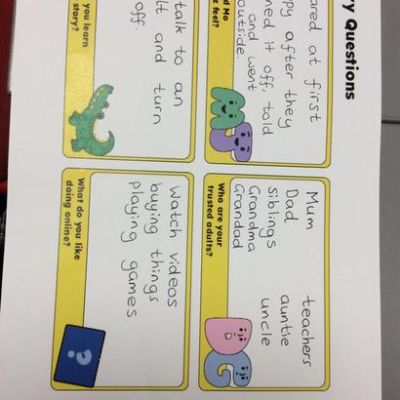 ry Questions
ared at first
py after they
ned it off, told
and went
outside.
d Mo
z feel?
Mum teachers
Dad auntie
siblings uncle
Grandma
Grandad
Who are your
trusted adults?
talk to an
lt and turn
off.
you learn
story?
Watch videos
buying things
playing games
What do you like
doing online?